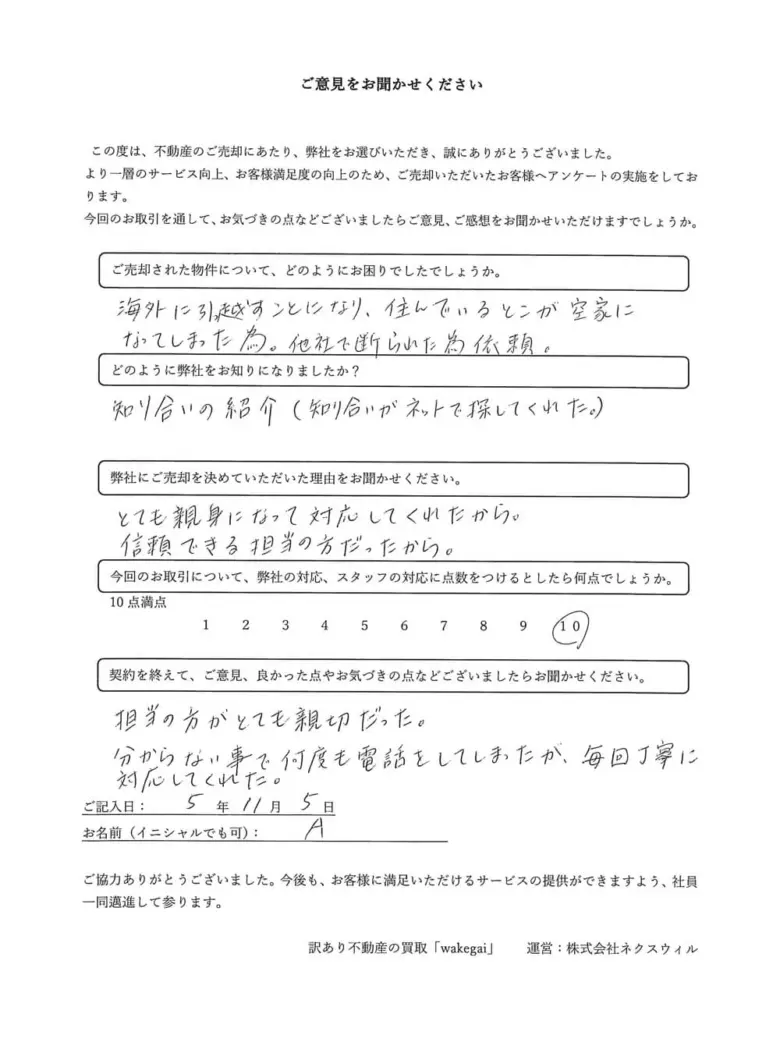 ご意見をお聞かせください
この度は、不動産のご売却にあたり、弊社をお選びいただき、誠にありがとうございました。
より一層のサービス向上、お客様満足度の向上のため、ご売却いただいたお客様へアンケートの実施をしてお
ります。
今回のお取引を通して、お気づきの点などございましたらご意見、ご感想をお聞かせいただけますでしょうか。
ご売却された物件について、どのようにお困りでしたでしょうか。
海外に引越すことになり、住んでいるとこが空家に
なってしまった為。他社で断られた為依頼。
どのように弊社をお知りになりましたか？
知り合いの紹介（知り合いがネットで探してくれた。）
弊社にご売却を決めていただいた理由をお聞かせください。
とても親身になって対応してくれたから。
信頼できる担当の方だったから。
今回のお取引について、弊社の対応、スタッフの対応に点数をつけるとしたら何点でしょうか。
10 点満点
1 2 3 4 5 6 7 8 9 10
契約を終えて、ご意見、良かった点やお気づきの点などございましたらお聞かせください。
担当の方がとても親切だった。
分からない事で何度も電話をしてしまったが、毎回丁寧に
対応してくれた。
ご記入日： 5 年 11 月 5 日
お名前（イニシャルでも可）： A
ご協力ありがとうございました。今後も、お客様に満足いただけるサービスの提供ができますよう、社員
一同邁進して参ります。
訳あり不動産の買取「wakegai」 運営：株式会社ネクスウィル